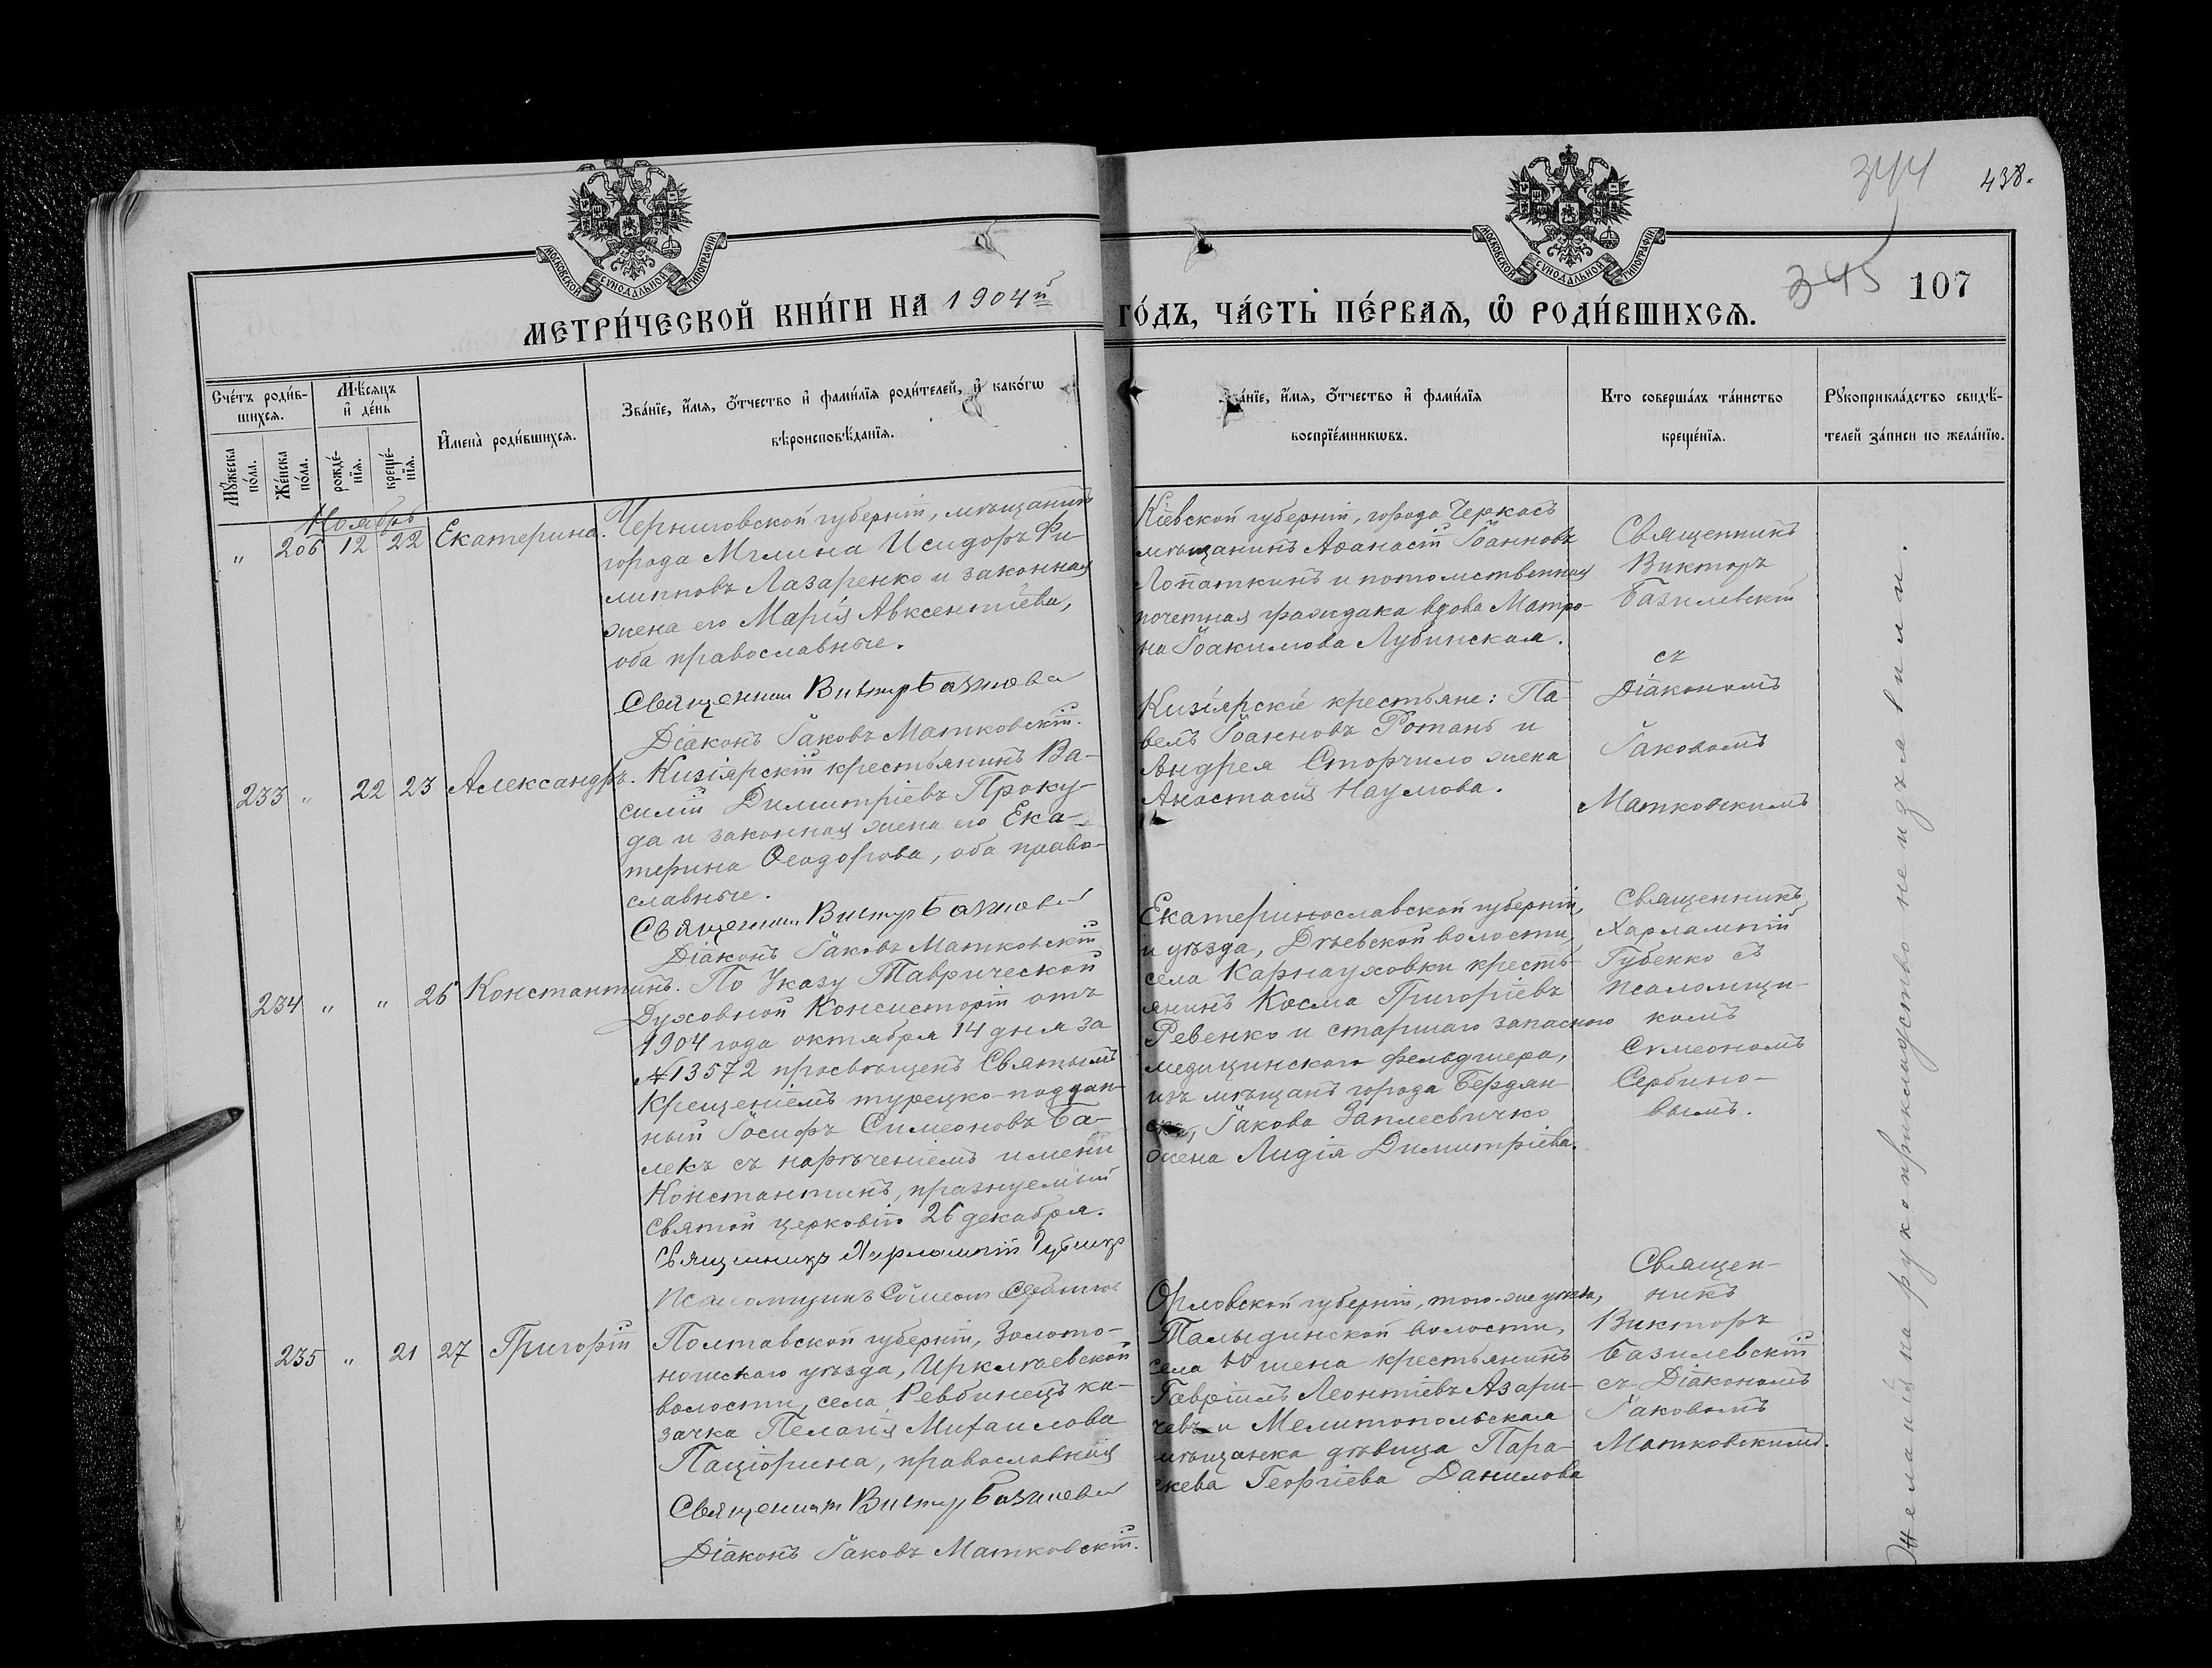 344
438.
МОСКОВСКОЙ СѴНОДАЛЬНОЙ ТИПОГРАФІИ
МОСКОВСКОЙ СѴНОДАЛЬНОЙ ТИПОГРАФІИ
345 107
МЕТРИ́ЧЕСКОЙ КНИ́ГИ НА 1904й ГО́ДЪ, ЧА́СТЬ ПЕ́РВАѦ, Ѡ҆ РОДИ́ВШИХСѦ.
Сче́тъ роди́в-
шихсѧ.
Мꙋ́жеска по́ла.
Же́нска по́ла.
Мѣ́сѧцъ
и҆ де́нь
рожде́-
нїѧ.
креще́-
нїѧ.
И҆мена̀ роди́вшихсѧ.
Зва́нїе, и҆́мѧ, ѻ҆́тчество и҆ фами́лїѧ роди́телей, и҆ како́гѡ
вѣроисповѣ́данїѧ.
Зва́нїе, и҆́мѧ, ѻ҆́тчество и҆ фами́лїѧ
воспрїе́мникѡвъ.
Кто соверша́лъ та́инство
креще́нїѧ.
Рꙋкоприкла́дство свидѣ́-
телей за́писи по жела́нїю.
Ноябрь
" 206 12 22 Екатерина.
Черниговской губерніи, мѣщанинъ
города Мглина Исидоръ Фи-
липповъ Лазаренко и законная
жена его Марія Авксентіева,
оба православные.
Священник Виктор Базилевс
Діаконъ Іаковъ Матковскій.
Кіевской губерніи, города Черкасъ
мѣщанинъ Аѳанасій Іоанновъ
Лопаткинъ и потомственная
почетная гражданка вдова Матро-
на Іоакимова Лубинская.
Священникъ
Викторъ
Базилевскій
съ
Діакономъ
Іаковомъ
Матковскимъ
233 " 22 23 Александръ.
Кизіярскій крестьянинъ Ва-
силій Димитріевъ Проку-
да и законная жена его Ека-
терина Ѳеодорова, оба право-
славные.
Священник Виктор Базилевс
Діаконъ Іаковъ Матковскій
Кизіярскіе крестьяне: Па-
велъ Іоанновъ Ротань и
Андрея Сторчило жена
Анастасія Наумова.
234 " " 26 Константинъ.
По Указу Таврической
Духовной Консисторіи отъ
1904 года октября 14 дня за
№ 13572 просвѣщенъ Святымъ
Крещеніемъ турецко-поддан-
ный Іосифъ Симеоновъ Ба-
лекъ съ нарѣченіемъ имени
Константинъ, празнуемый
святой церковію 26 декабря.
Священникъ Харлампій Губенко
Псаломщикъ Симеон Сербинов
Екатеринославской губерніи,
и уѣзда, Діевской волости,
села Карнауховки кресть-
янинъ Косма Григоріевъ
Ревенко и старшаго запасного
медицинского фельдшера,
изъ мѣщанъ города Бердян-
ска, Іакова Заплесвичко
жена Лидія Димитріева.
Священникъ
Харлампій
Губенко съ
псаломщи-
комъ
Симеономъ
Сербино-
вымъ.
235 " 21 27 Григорій
Полтавской губерніи, Золото-
ношскаго уѣзда, Ирклѣевской
волости, села Ревбинецъ ка-
зачка Пелагія Михаилова
Паціорина, православная
Священник Виктор Базилевс
Діаконъ Іаковъ Матковскій.
Орловской губерніи, того-же уѣзда,
волости,
села крестьянинъ
Гавріилъ Леонтіевъ Азари-
чевъ и Мелитопольская
мѣщанка дѣвица Пара-
скева Георгіева Данилова
Священ-
никъ
Викторъ
Базилевскій
съ Діакономъ
Іаковомъ
Матковскимъ.
Желанія на рукоприкладство не изъявили.